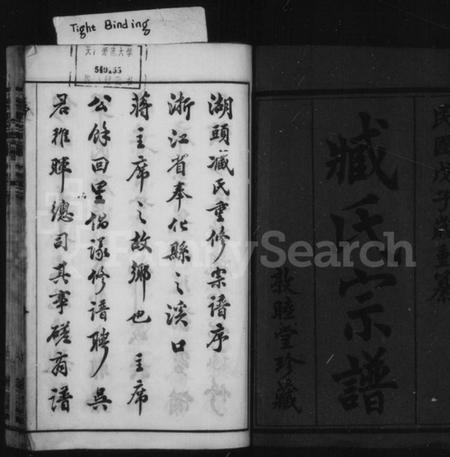 Tight Binding
民國戊子歲重纂
臧氏宗譜
敦睦堂珍藏
湖頭臧氏重修宗譜序
浙江省奉化縣之溪口
蔣主席之故鄉也主席
公餘回里倡議修譜聘吳
君稚暉總司其事磋商譜
FamilySearch